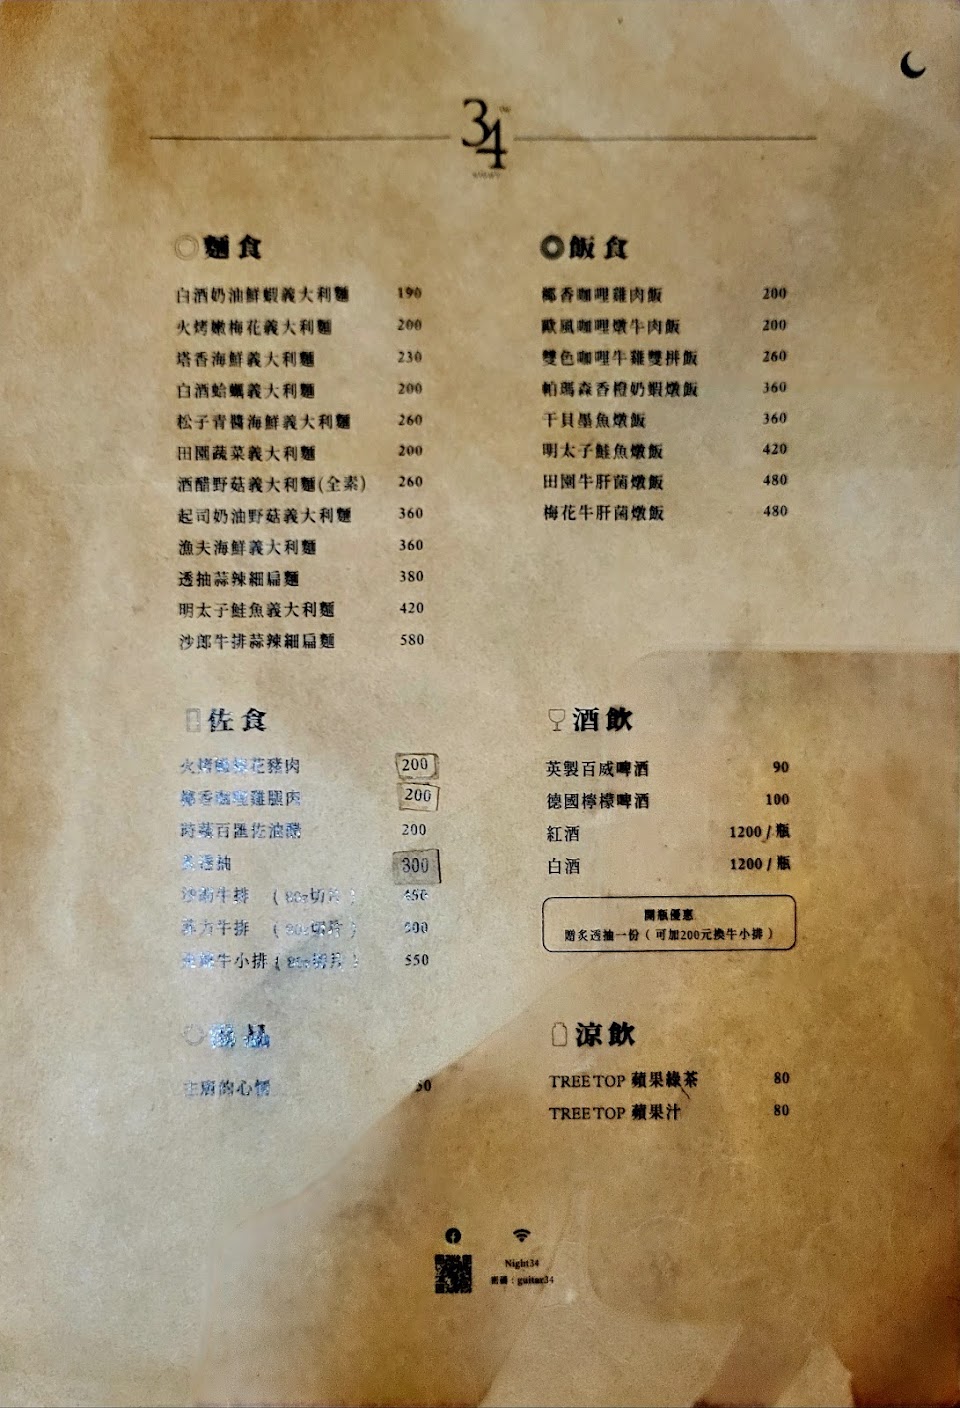 34
麵食
白酒奶油鮮蝦義大利麵 190
火烤嫩梅花義大利麵 200
塔香海鮮義大利麵 230
白酒蛤蠣義大利麵 200
松子青醬海鮮義大利麵 260
田園蔬菜義大利麵 200
酒醋野菇義大利麵(全素) 260
起司奶油野菇義大利麵 360
漁夫海鮮義大利麵 360
透抽蒜辣細扁麵 380
明太子鮭魚義大利麵 420
沙郎牛排蒜辣細扁麵 580
飯食
椰香咖哩雞肉飯 200
歐風咖哩燉牛肉飯 200
雙色咖哩牛雞雙拼飯 260
帕瑪森香橙奶蝦燉飯 360
干貝墨魚燉飯 360
明太子鮭魚燉飯 420
田園牛肝菌燉飯 480
梅花牛肝菌燉飯 480
佐食
火烤嫩梅花豬肉 200
椰香咖哩雞腿肉 200
時蔬百匯佐油醋 200
炙透抽 300
牛排 切片
牛排
牛小排 550
品
主廚的心情
酒飲
英製百威啤酒 90
德國檸檬啤酒 100
紅酒 1200 / 瓶
白酒 1200 / 瓶
開瓶優惠
贈炙透抽一份 ( 可加200元換牛小排 )
涼飲
TREE TOP 蘋果綠茶 80
TREE TOP 蘋果汁 80
Night34
密碼 : guitar34